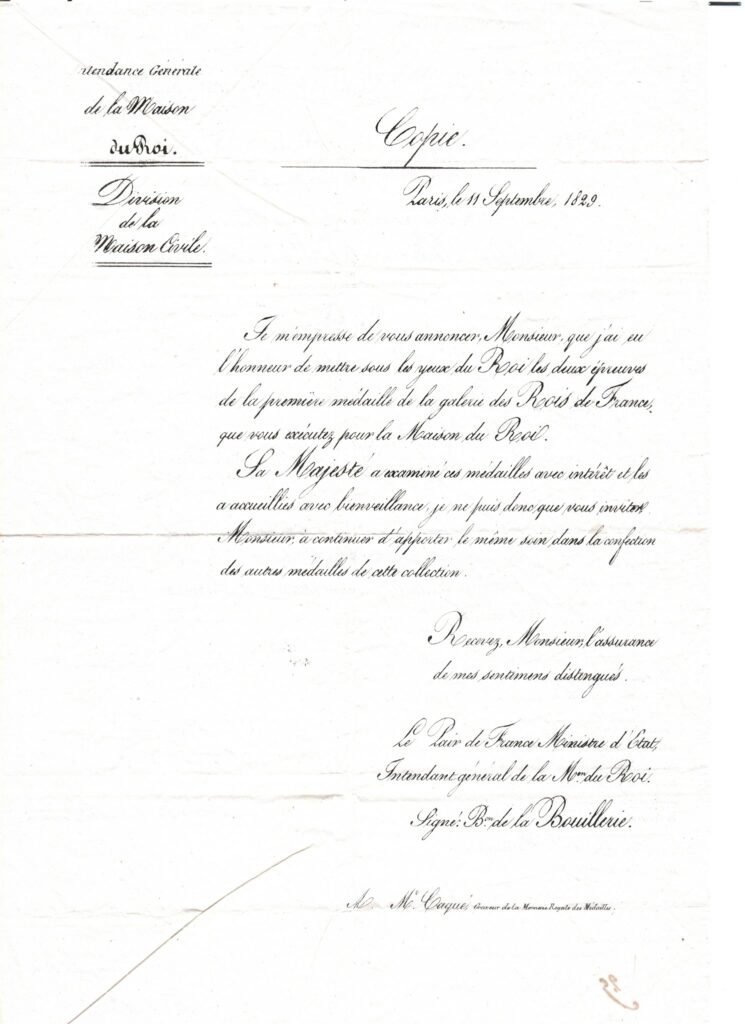 ntendance Générale
de la Maison
du Roi.
Division
de la
Maison Civile.
Copie.
Paris, le 11 Septembre, 1829.
Je m'empresse de vous annoncer, Monsieur, que j'ai eu
l'honneur de mettre sous les yeux du Roi les deux épreuves
de la première médaille de la galerie des Rois de France,
que vous exécutez pour la Maison du Roi.
Sa Majesté a examiné ces médailles avec intérêt et les
a accueillies avec bienveillance, je ne puis donc que vous inviter,
Monsieur, à continuer d'apporter le même soin dans la confection
des autres médailles de cette collection.
Recevez, Monsieur, l'assurance
de mes sentimens distingués.
Le Pair de France Ministre d'Etat,
Intendant général de la Mon. du Roi.
Signé: Bon. de la Bouillerie.
A Mr. Caqué, Graveur de la Monnaie Royale des Médailles.